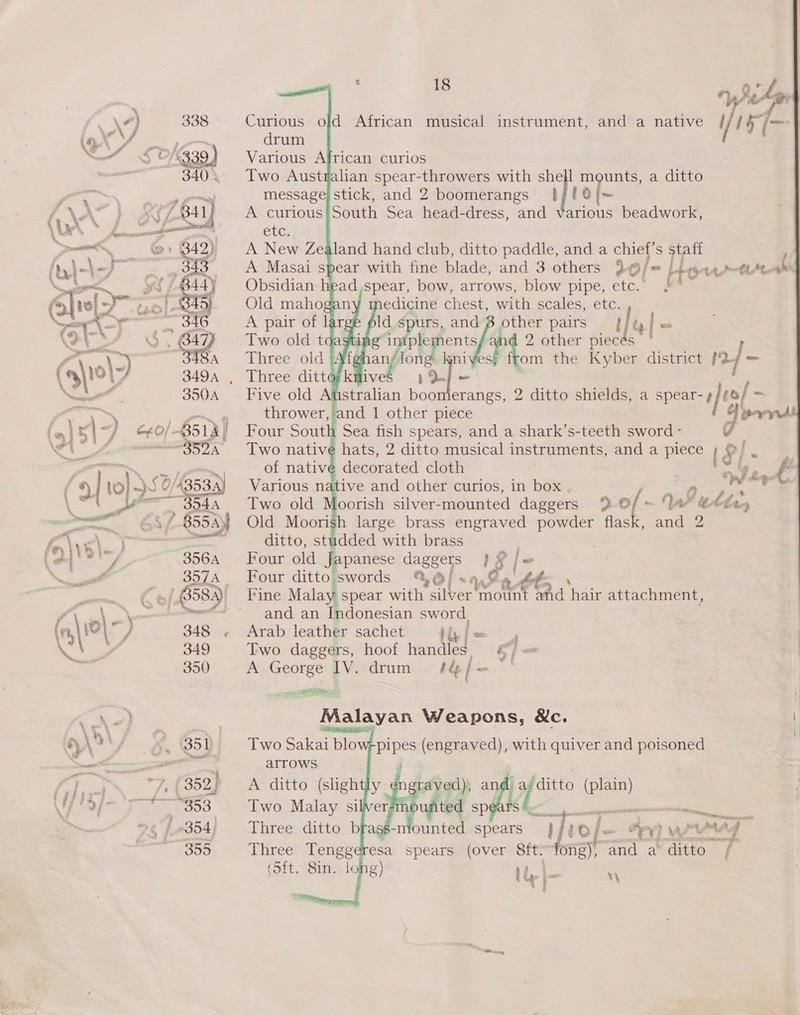 18
338 Curious old African musical instrument, and a native
drum
339 Various African curios
340 Two Australian spear-throwers with shell mounts, a ditto
message stick, and 2 boomerangs
341 A curious South Sea head-dress, and various beadwork,
etc.
342 A New Zealand hand club, ditto paddle, and a chief's staff
343 A Masai spear with fine blade, and 3 others
344 Obsidian head spear, bow, arrows, blow pipe, etc.
345 Old mahogany medicine chest, with scales, etc.
346 A pair of large old spurs, and 3 other pairs
347 Two old toasting implements, and 2 other pieces
348A Three old Afghan long knives from the Kyber district
349A Three ditto knives
350A Five old Australian boomerangs, 2 ditto shields, a spear-
thrower, and 1 other piece
351A Four South Sea fish spears, and a shark's-teeth sword
352A Two native hats, 2 ditto musical instruments, and a piece
of native decorated cloth
353A Various native and other curios, in box
354A Two old Moorish silver-mounted daggers
355A Old Moorish large brass engraved powder flask, and 2
ditto, studded with brass
356A Four old Japanese daggers
357A Four ditto swords
358A Fine Malay spear with silver mount and hair attachment,
and an Indonesian sword
348 Arab leather sachet
349 Two daggers, hoof handles
350 A George IV. drum
Malayan Weapons, &c.
351 Two Sakai blow-pipes (engraved), with quiver and poisoned
arrows
352 A ditto (slightly engraved), and a ditto (plain)
353 Two Malay silver-mounted spears
354 Three ditto brass-mounted spears
355 Three Tenggeresa spears (over 8ft. long), and a ditto
(5ft. 8in. long)